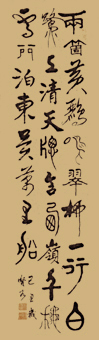 兩箇黃鸝鳴翠柳一行白
鷺上清天牕含西嶺千秋
雪門泊東吳萬里船